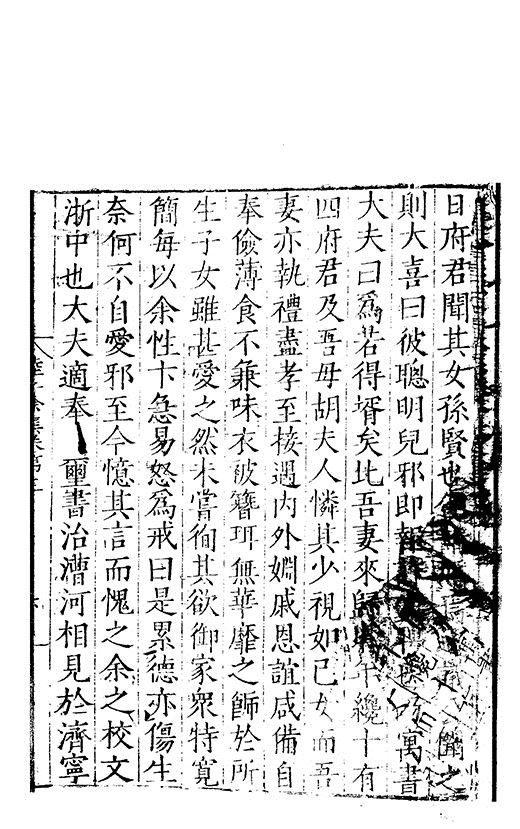 日府君聞其女孫賢也聞之
則大喜曰彼聰明兒邪即報寓書
大夫曰爲若得壻矣此吾妻來歸時年纔十有
四府君及吾母胡夫人憐其少視如己女而吾
妻亦執禮盡孝至接遇内外婣戚恩誼咸備自
奉儉薄食不兼味衣被簪珥無華靡之飾於所
生子女雖甚愛之然未嘗徇其欲御家衆特寛
簡每以余性卞急易怒爲戒曰是累德亦傷生
奈何不自愛邪至今憶其言而愧之余之校文
浙中也大夫適奉
璽書治漕河相見於濟寧